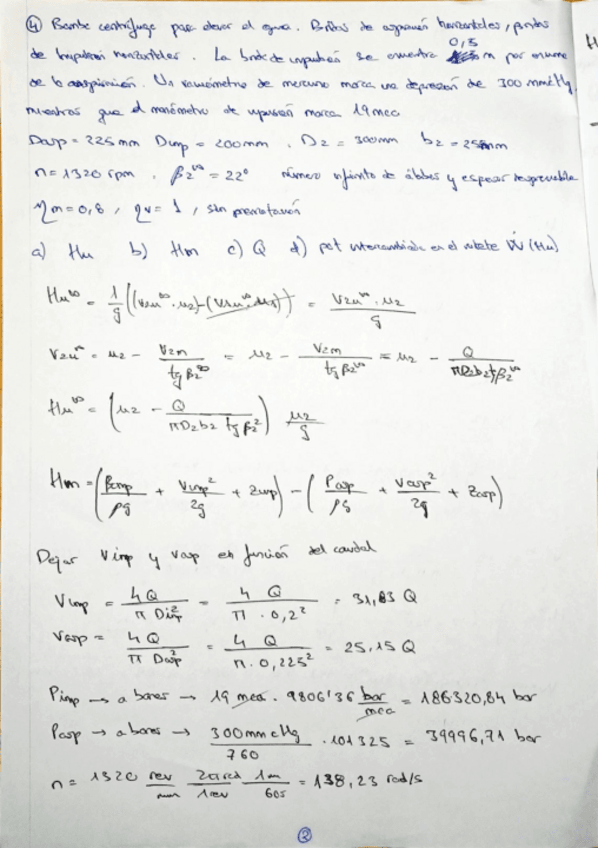 ④ Bomba centrífuga para elevar el agua. Bridas de aspiración horizontales, bridas
de impulsión horizontales. La brida de impulsión se encuentra 0,5 m por encima
de la aspiración. Un vacuómetro de mercurio marca una depresión de 300 mmcHg,
mientras que el manómetro de impulsión marca 19 mca
Dasp = 225 mm Dimp = 200 mm . D2 = 300 mm b2 = 25 mm
n = 1320 rpm . β2^∞ = 22° número infinito de álabes y espesor despreciable
ηm = 0,8 , ηv = 1 , sin prerrotación
a) Hu b) Hm c) Q d) pot intercambiada en el rodete Ẇ (Hu)
Hu^∞ = 1/g ((v2u^∞ · u2) - (v1u^∞ · u1)) = v2u^∞ · u2 / g
v2u^∞ = u2 - v2m / tg β2^∞ = u2 - v2m / tg β2^∞ = u2 - Q / πD2b2 tg β2^∞
Hu^∞ = (u2 - Q / πD2b2 tg β2^∞) u2/g
Hm = (Pimp/ρg + Vimp²/2g + Zimp) - (Pasp/ρg + Vasp²/2g + Zasp)
Dejar Vimp y Vasp en función del caudal
Vimp = 4Q / π Dimp² = 4 Q / π · 0,2² = 31,83 Q
Vasp = 4Q / π Dasp² = 4 Q / π · 0,225² = 25,15 Q
Pimp → a bares → 19 mca · 9806'36 bar/mca = 186320,84 bar
Pasp → a bares → 300 mmcHg / 760 · 101325 = 39996,71 bar
n = 1320 rev/min 2π rad/1 rev 1m/60s = 138,23 rad/s
②